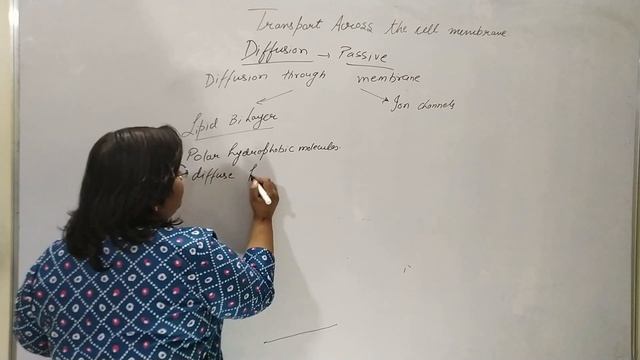 Transport Across the cell membrane
Diffusion → Passive
Diffusion through membrane
Lipid Bilayer
Ion channels
Polar hydrophobic molecules
diffuse